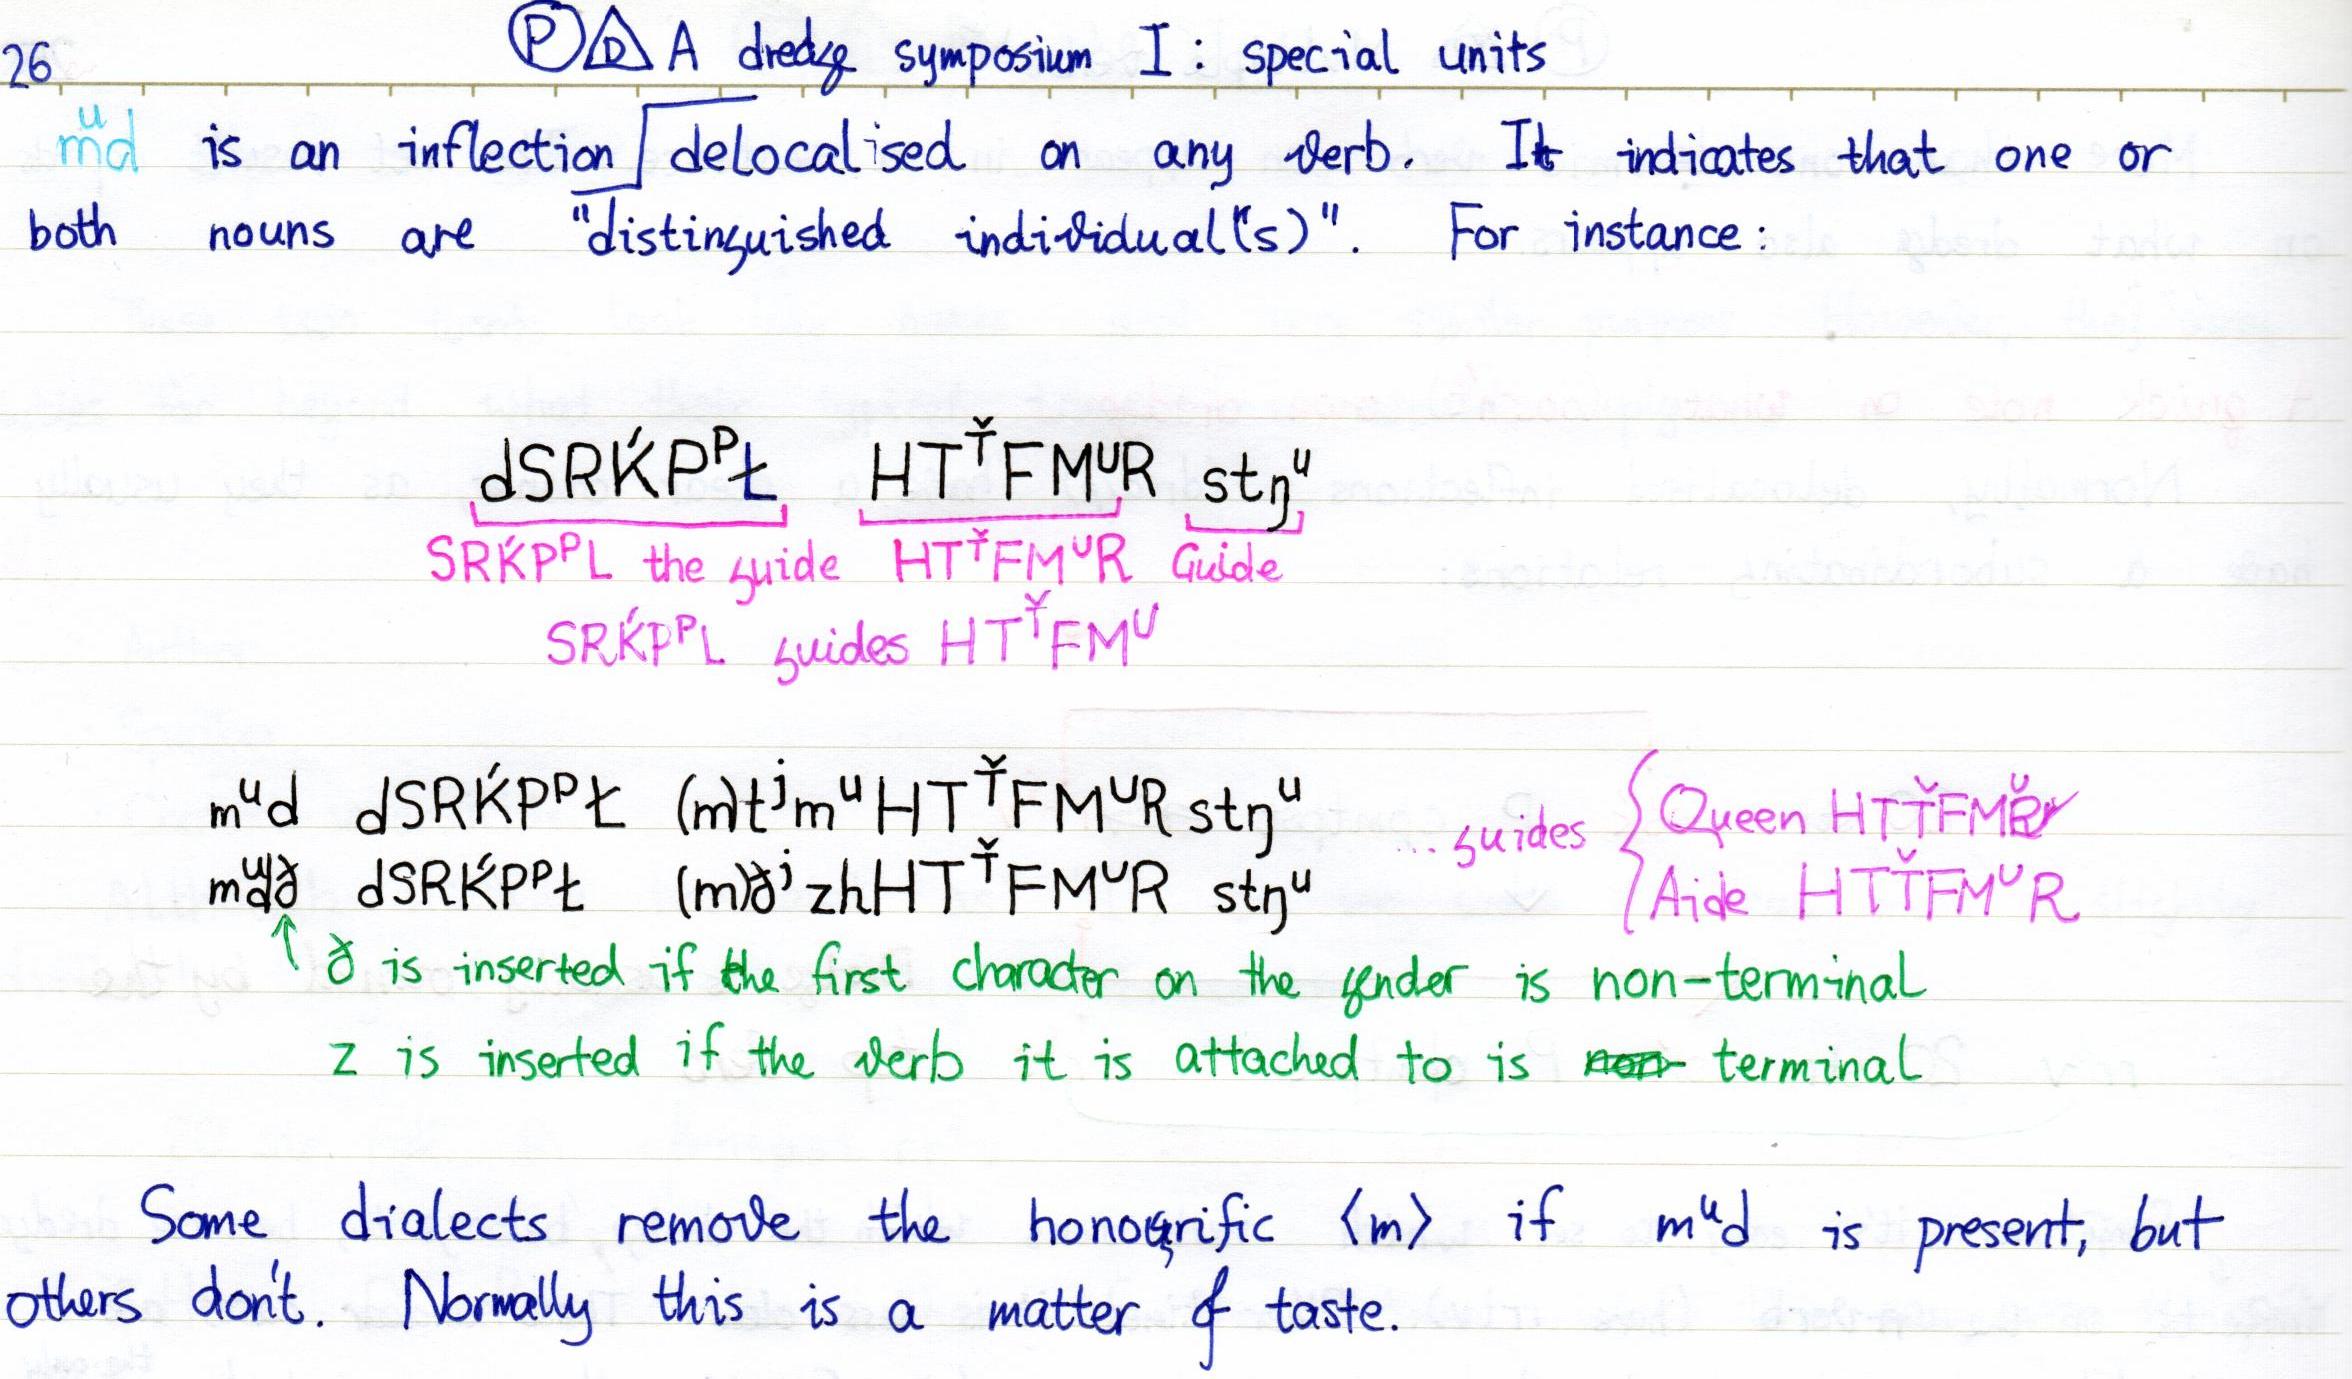 26 Ⓟ D A dredge symposium I: special units
mᵘd is an inflection delocalised on any verb. It indicates that one or
both nouns are "distinguished individual("s)". For instance:
dSRḰPᴾŁ HTᵀ̌FMᵁR stŋᵘ
SRḰPᴾL the guide HTᵀ̌FMᵁR Guide
SRḰPᴾL guides HTᵀ̌FMᵁ
mᵘd dSRḰPᴾŁ (m)tʲmᵘHTᵀ̌FMᵁR stŋᵘ ...guides Queen HTŤFM
mᵘdð dSRḰPᴾŁ (m)ðʲzhHTᵀ̌FMᵁR stŋᵘ Aide HTŤFMᵁR
↑ ð is inserted if the first character on the gender is non-terminal
z is inserted if the verb it is attached to is non- terminal
Some dialects remove the honorific ⟨m⟩ if mᵘd is present, but
others don't. Normally this is a matter of taste.